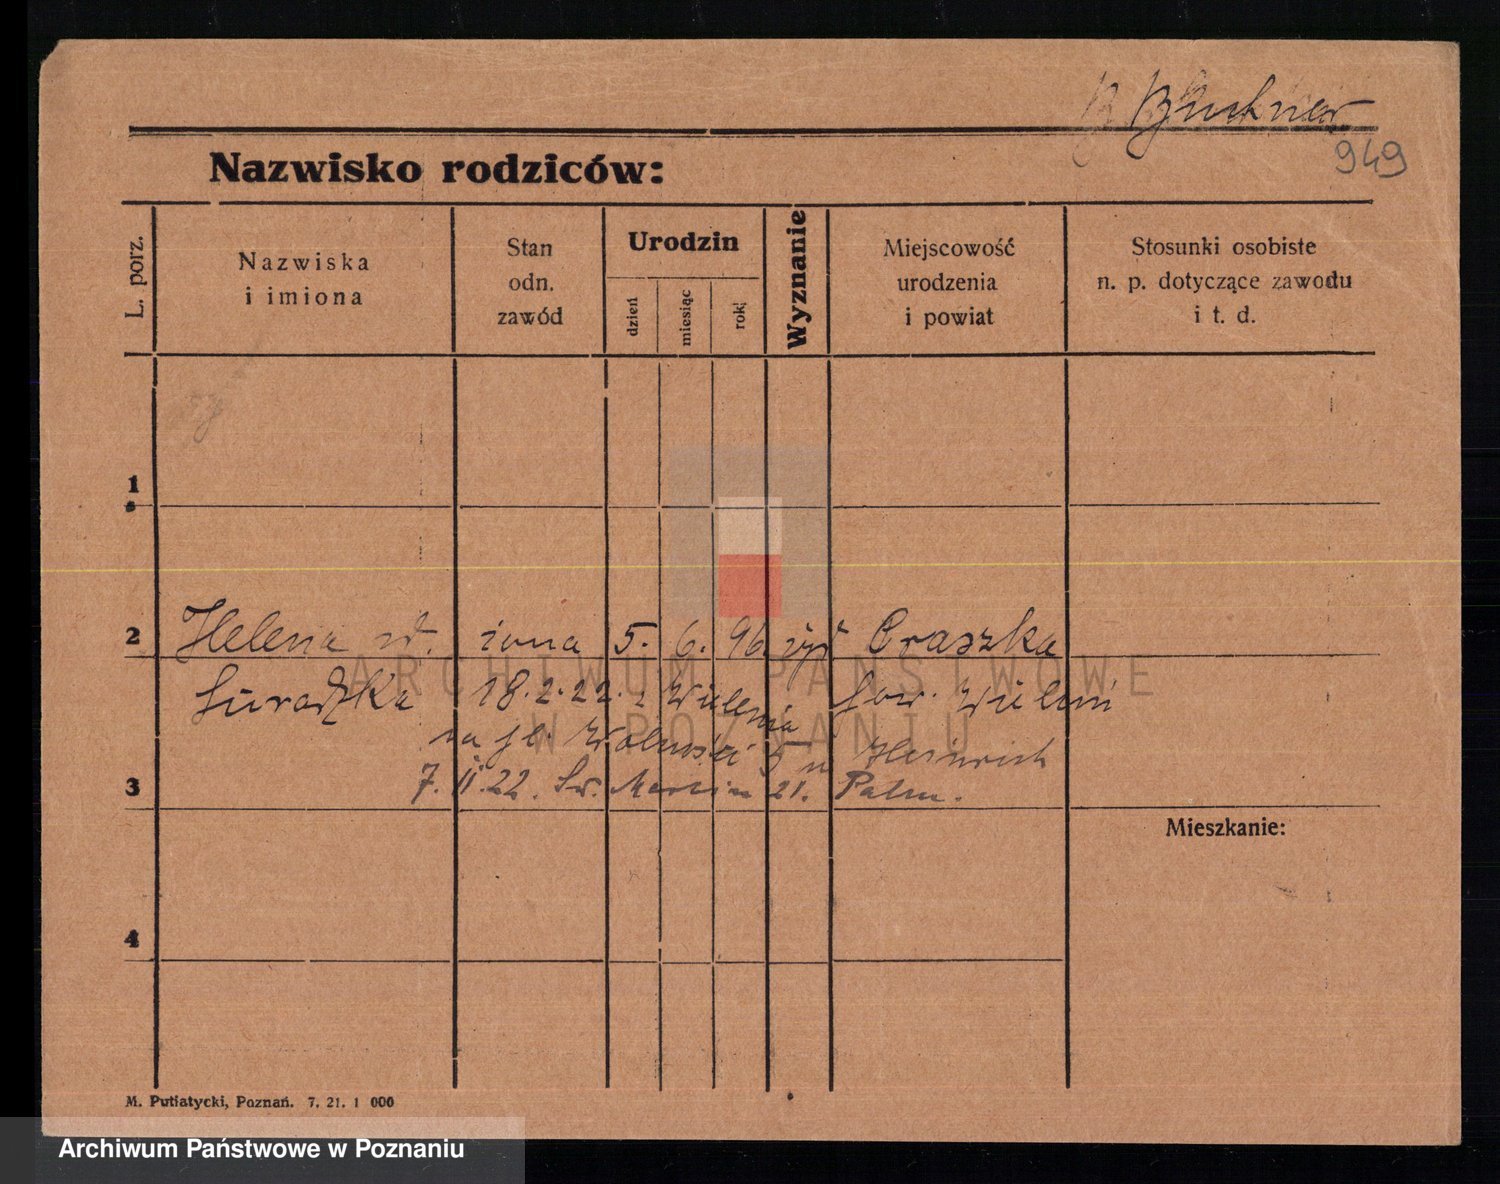 Buchner
949
Nazwisko rodziców:
L. porz.
Nazwiska
i imiona
Stan
odn.
zawód
Urodzin
dzień
miesiąc
rok
Wyznanie
Miejscowość
urodzenia
i powiat
Stosunki osobiste
n. p. dotyczące zawodu
i t. d.
1
2 Helena żona 5. 6. 96 Craszka
18.2.22. z Wilenia
na pl. Wolności 5 u Heinrich
3 7.II.22. Św. Marcin 21. Palm.
Mieszkanie:
4
ARCHIWUM PAŃSTWOWE
W POZNANIU
M. Putiatycki, Poznań. 7. 21. 1 000
Archiwum Państwowe w Poznaniu